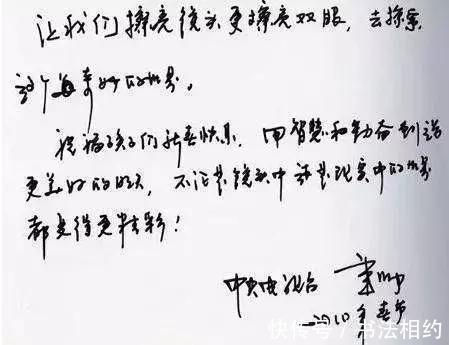 让我们擦亮镜头更擦亮双眼，去探索
这个美妙的世界。
祝福孩子们新春快乐，用智慧和勤奋创造
更美好的明天，不论是镜头中还是现实中的世界
都变得更精彩！
中央电视台
2010年春节
快传号/书法相约